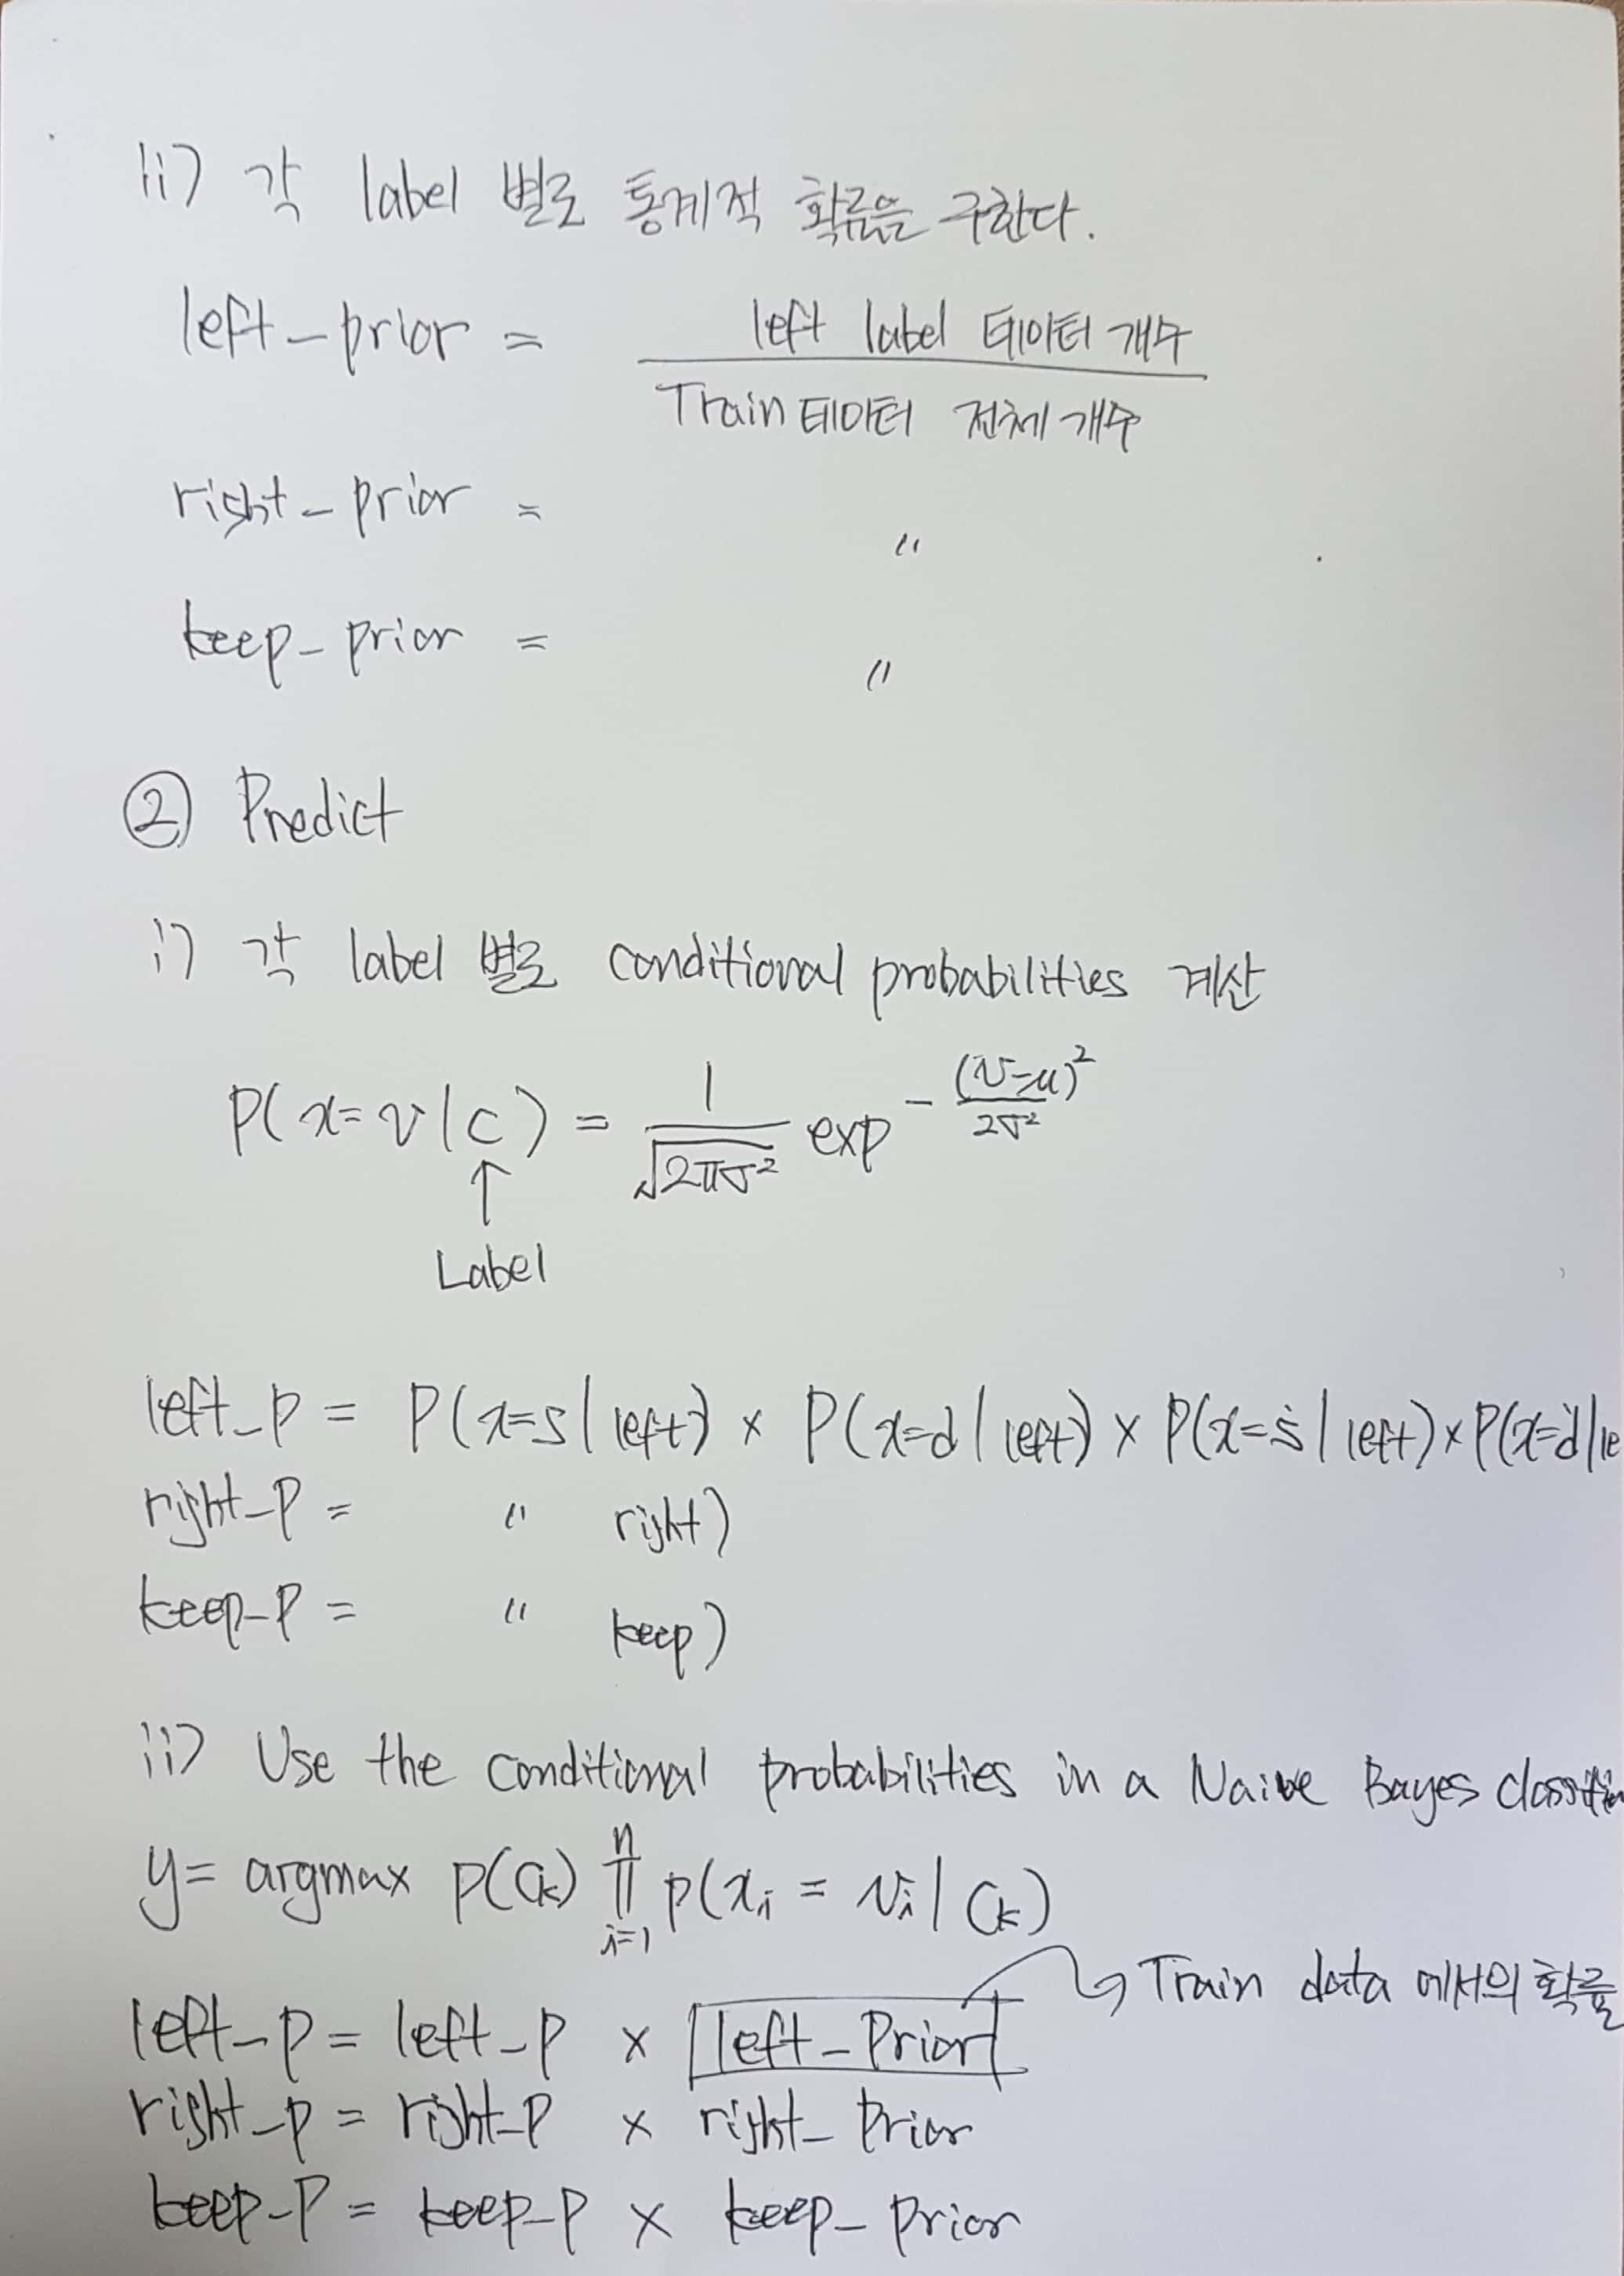 ii) 각 label 별로 통계적 확률을 구한다.
left_prior = left label 데이터 개수
Train 데이터 전체 개수
right_prior = "
keep_prior = "
② Predict
i) 각 label 별로 conditional probabilities 계산
P(x=v|C) = 1/√2πσ² exp -(v-μ)²/2σ²
↑
Label
left_p = P(x=s|left) × P(x=d|left) × P(x=ṡ|left) × P(x=ḋ|le
right_p = " right)
keep_p = " keep)
ii) Use the conditional probabilities in a Naive Bayes classifi
y = argmax p(Ck) ∏ i=1 n p(xi = vi | Ck)
Train data 에서의 확률
left_p = left_p × left_Prior
right_p = right_p × right_prior
keep_p = keep_p × keep_prior